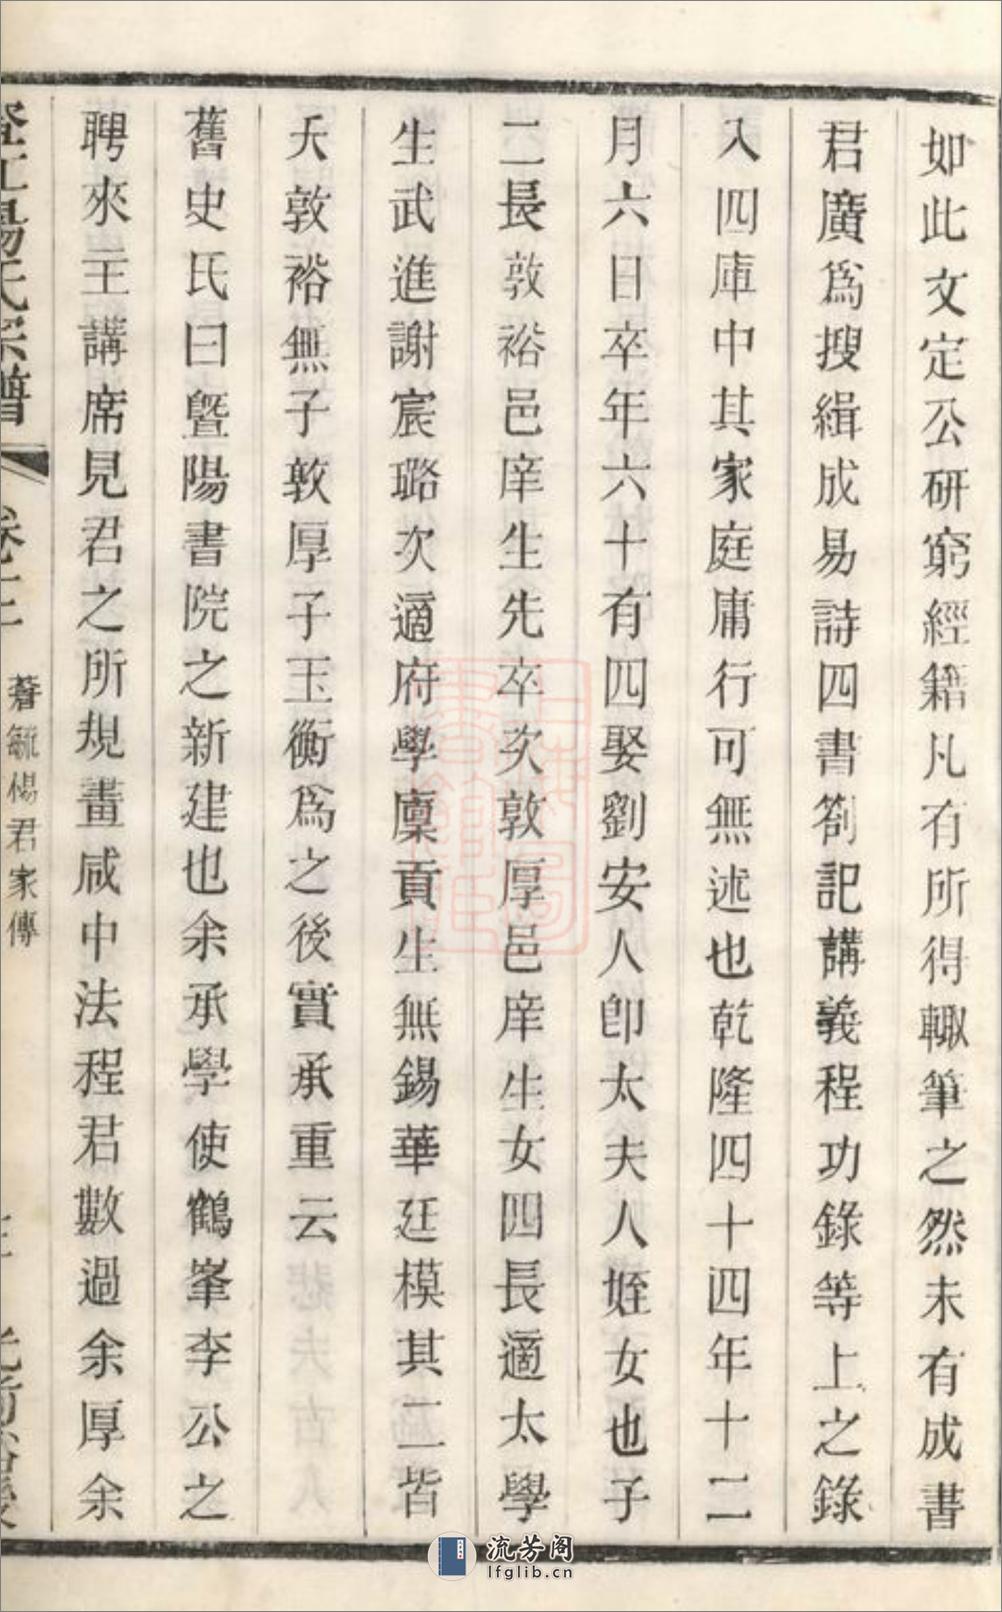 如此文定公研窮經籍凡有所得輙筆之然未有成書
君廣爲搜緝成易詩四書劄記講義程功錄等上之錄
入四庫中其家庭庸行可無述也乾隆四十四年十二
月六日卒年六十有四娶劉安人卽太夫人姪女也子
二長敦裕邑庠生先卒次敦厚邑庠生女四長適太學
生武進謝宸璐次適府學廩貢生無錫華廷模其二皆
夭敦裕無子敦厚子玉衡爲之後實承重云
舊史氏曰曁陽書院之新建也余承學使鶴峯李公之
聘來主講席見君之所規畫咸中法程君數過余厚余
江楊氏宗譜
卷十二
蒼毓楊君家傳
流芳阁
lfglib.cn